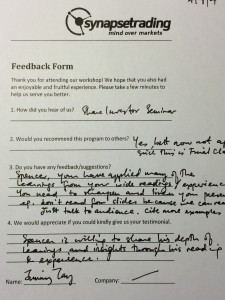 synapsetrading
mind over markets
Feedback Form
Thank you for attending our workshop! We hope that you also had
an enjoyable and fruitful experience. Please take a few minutes to
help us serve you better.
1. How did you hear of us? Share Investor Seminar
2. Would you recommend this program to others? Yes but now not
since this is Trial
3. Do you have any feedback/suggestions?
Spencer, you have applied many of the
learnings from your wide readings & experience.
You need
eg. don't read for slides because we can read
Just talk to audience. Cite more examples
4. We would appreciate if you could kindly give us your testimonial.
Spencer is willing to share his depth of
learnings and insights through his reading
& experience.
Name: Company: